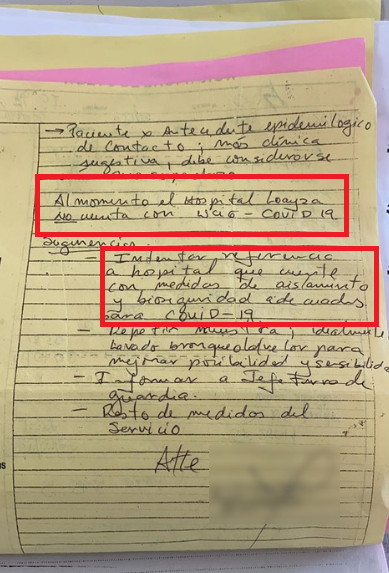 → Paciente x Antecedente epidemiologico
de contacto; más clínica
sugestiva, debe considerarse
Al momento el Hospital Loayza
NO cuenta con UCIG - COVID 19
Sugerencias
- Intentar referencia
a hospital que cuente
con medidas de aislamiento
y bioseguridad adecuados
para COVID-19.
- Repetir muestra; idealmente
lavado bronqueoalveolar para
mejorar posibilidad y sensibilidad
- Informar a Jefatura de
guardia.
- Resto de medidas del
Servicio
Atte